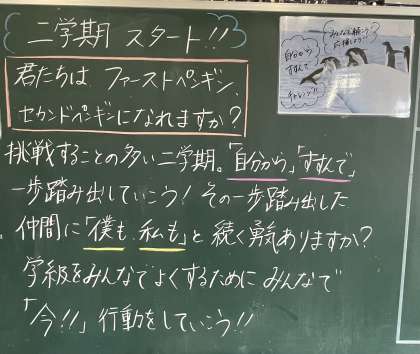 二学期 スタート!!
君たちは ファーストペンギン、
セカンドペンギンになれますか?
挑戦することの多い二学期。「自分から」「すすんで」
一歩踏み出していこう! その一歩踏み出した
仲間に「僕も、私も」と 続く勇気ありますか?
学級をみんなでよくするために みんなで
「今!!」行動をしていこう!!
自分から
すすんで